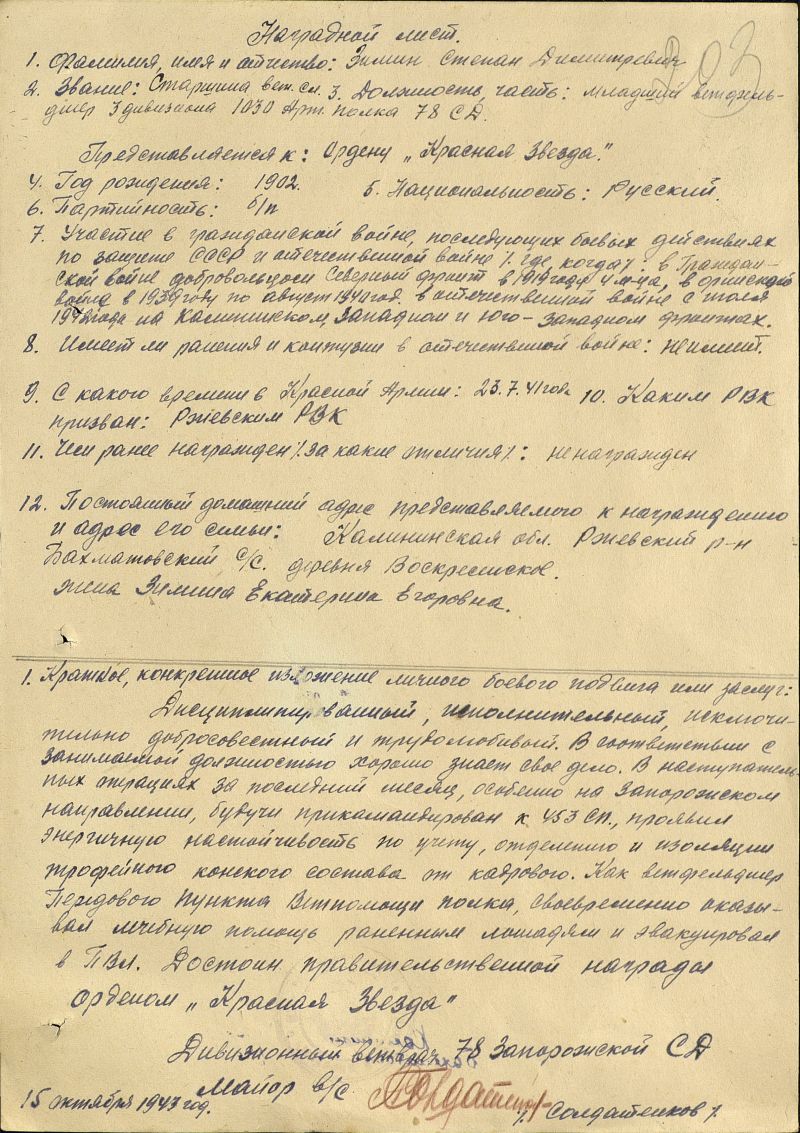 Наградной лист.
1. Фамилия, имя и отчество: Зимин Степан Димитревич
2. Звание: Старшина вет. сл. 3. Должность, часть: младший ветфель-
дшер 3 дивизиона 1030 Арт. полка 78 СД.
Представляется к: Ордену „Красная Звезда."
4. Год рождения: 1902. 5. Национальность: Русский.
6. Партийность: б/п
7. Участие в гражданской войне, последующих боевых действиях
по защите СССР и отечественной войне /где, когда/: в Граждан-
ской войне добровольцом Северный фронт в 1919 году 4 м-ца, в финской
война в 1939 году по август 1940 год. в отечественной войне с июля
на Калининском, Западном и юго-Западном фронтах.
8. Имеет ли ранения и контузии в отечественной войне: не имеет.
9. С какого времени в Красной Армии: 23.7.41 года 10. Каким РВК
призван: Ржевским РВК
11. Чем ранее награжден /за какие отличия/: не награжден
12. Постоянный домашний адрес представляемого к награждению
и адрес его семьи: Калининская обл. Ржевский р-н
Бахматовский с/с. деревня Воскресенское.
жена Зимина Екатерина Егоровна.
1. Краткое, конкретное изложение личного боевого подвига или заслуг:
Дисциплинированный, исполнительный, исключи-
тельно добросовестный и трудолюбивый. В соответствии с
занимаемой должностью хорошо знает свое дело. В наступатель-
ных операциях за последний месяц, особенно на Запорожском
направлении, будучи прикомандирован к 453 СП., проявил
энергичную настойчивость по учету, отделению и изоляции
трофейного конского состава от кадрового. Как ветфельдшер
Передового Пункта Ветпомощи полка, своевременно оказы-
вал лечебную помощь раненным лошадям и эвакуировал
в ПВЛ. Достоин правительственной награды
орденом „Красная Звезда"
Дивизионный ветврач 78 Запорожской СД
Майор в/с
15 октября 1943 год. / Солдатенков /.